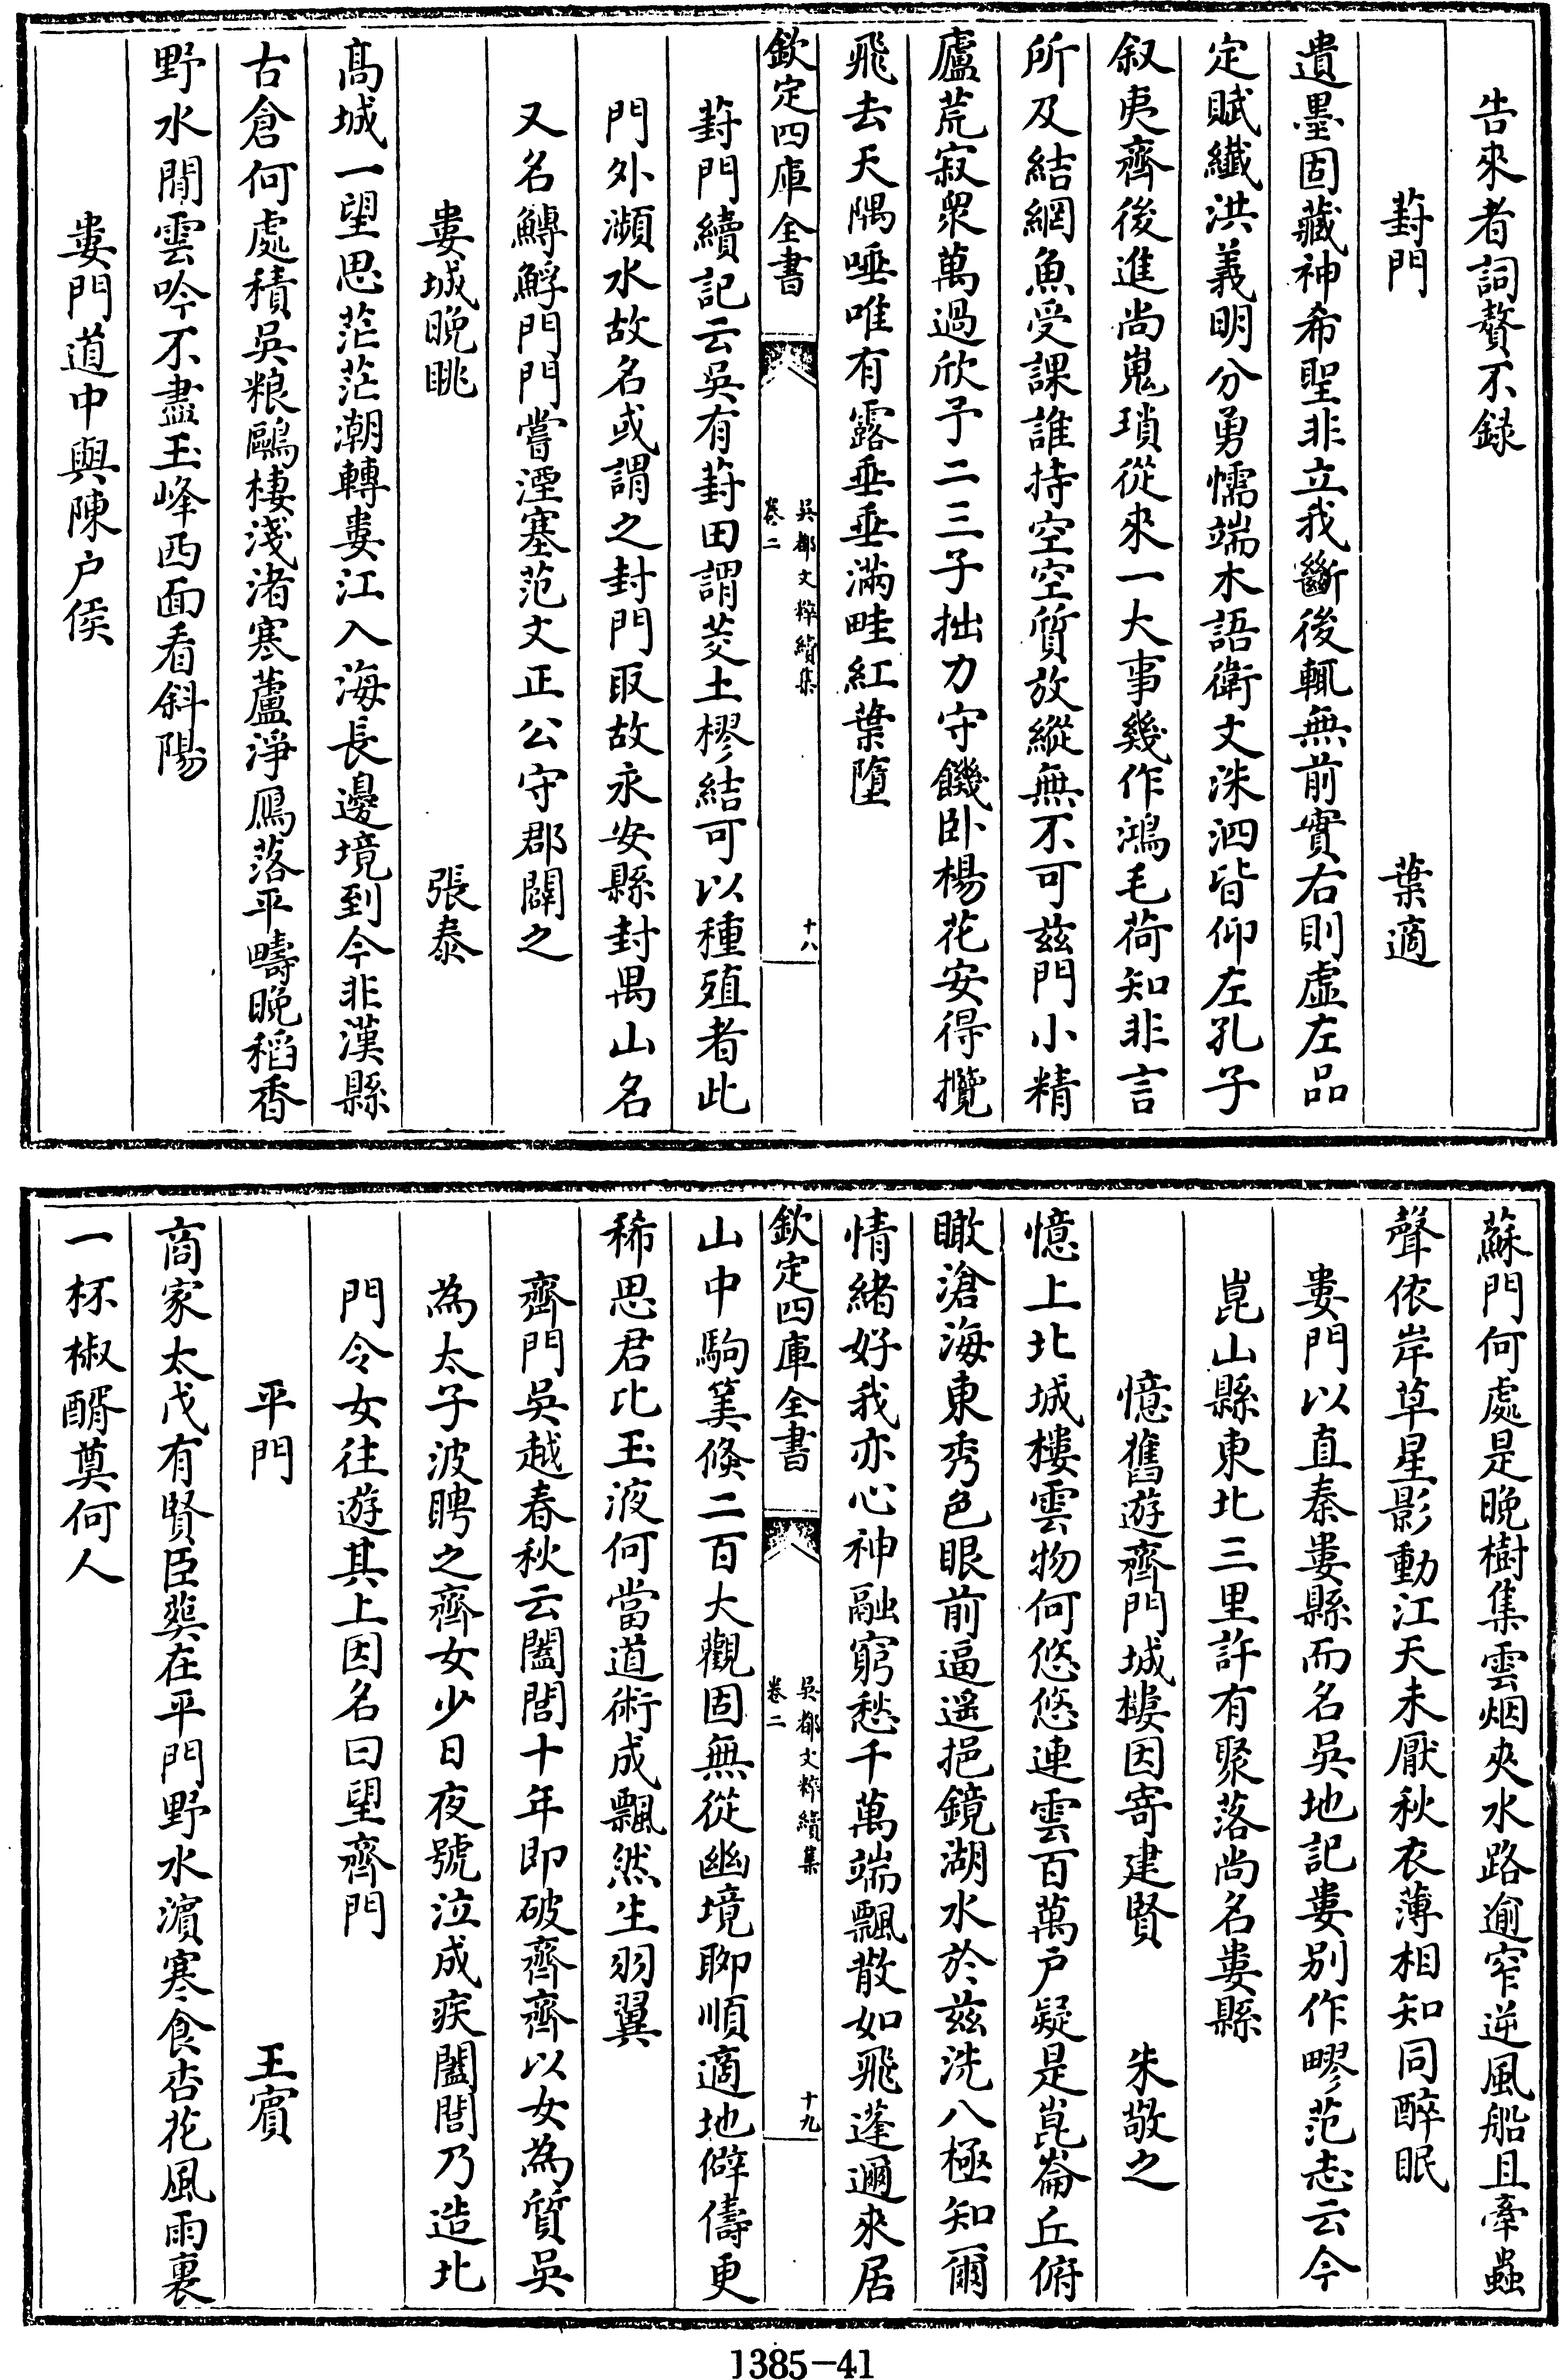 告來者詞贅不録
葑門　葉適
遺墨固藏神希聖非立我斷後輒無前實右則虚左品
定賦纎洪義明分勇懦端木語衛文洙泗皆仰左孔子
叙夷齊後進尚嵬瑣從來一大事幾作鴻毛荷知非言
所及結網魚受課誰持空空質放縱無不可兹門小精
廬荒寂衆萬過欣予二三子拙力守饑卧楊花安得攬
飛去天隅唾唯有露垂垂滿畦紅葉墮
欽定四庫全書　吳都文粹續集　卷二　十八
葑門續記云吳有葑田謂茭土樛結可以種殖者此
門外瀕水故名或謂之封門取故永安縣封禺山名
又名鱄鯙門門嘗湮塞范文正公守郡闢之
婁城晚眺　張泰
髙城一望思茫茫潮轉婁江入海長邊境到今非漢縣
古倉何處積吳粮鷗棲淺渚寒蘆淨鴈落平疇晚稻香
野水閒雲吟不盡玉峰西面看斜陽
婁門道中與陳户侯
蘇門何處是晚樹集雲烟夾水路逾窄逆風船且牽蟲
聲依岸草星影動江天未厭秋衣薄相知同醉眠
婁門以直秦婁縣而名吳地記婁别作疁范志云今
崑山縣東北三里許有聚落尚名婁縣
憶舊遊齊門城樓因寄建賢　朱敬之
憶上北城樓雲物何悠悠連雲百萬户疑是崑崙丘俯
瞰滄海東秀色眼前逼遥挹鏡湖水於兹洗八極知爾
情緒好我亦心神融窮愁千萬端飄散如飛蓬邇來居
欽定四庫全書　吳都文粹續集　卷二　十九
山中駒篤倐二百大觀固無從幽境聊順適地僻儔更
稀思君比玉液何當道術成飄然生羽翼
齊門吳越春秋云闔閭十年即破齊齊以女為質吳
為太子波聘之齊女少日夜號泣成疾闔閭乃造北
門令女往遊其上因名曰望齊門
平門　王賓
商家太戊有賢臣塟在平門野水濵寒食杏花風雨裏
一杯椒醑奠何人
1385-41